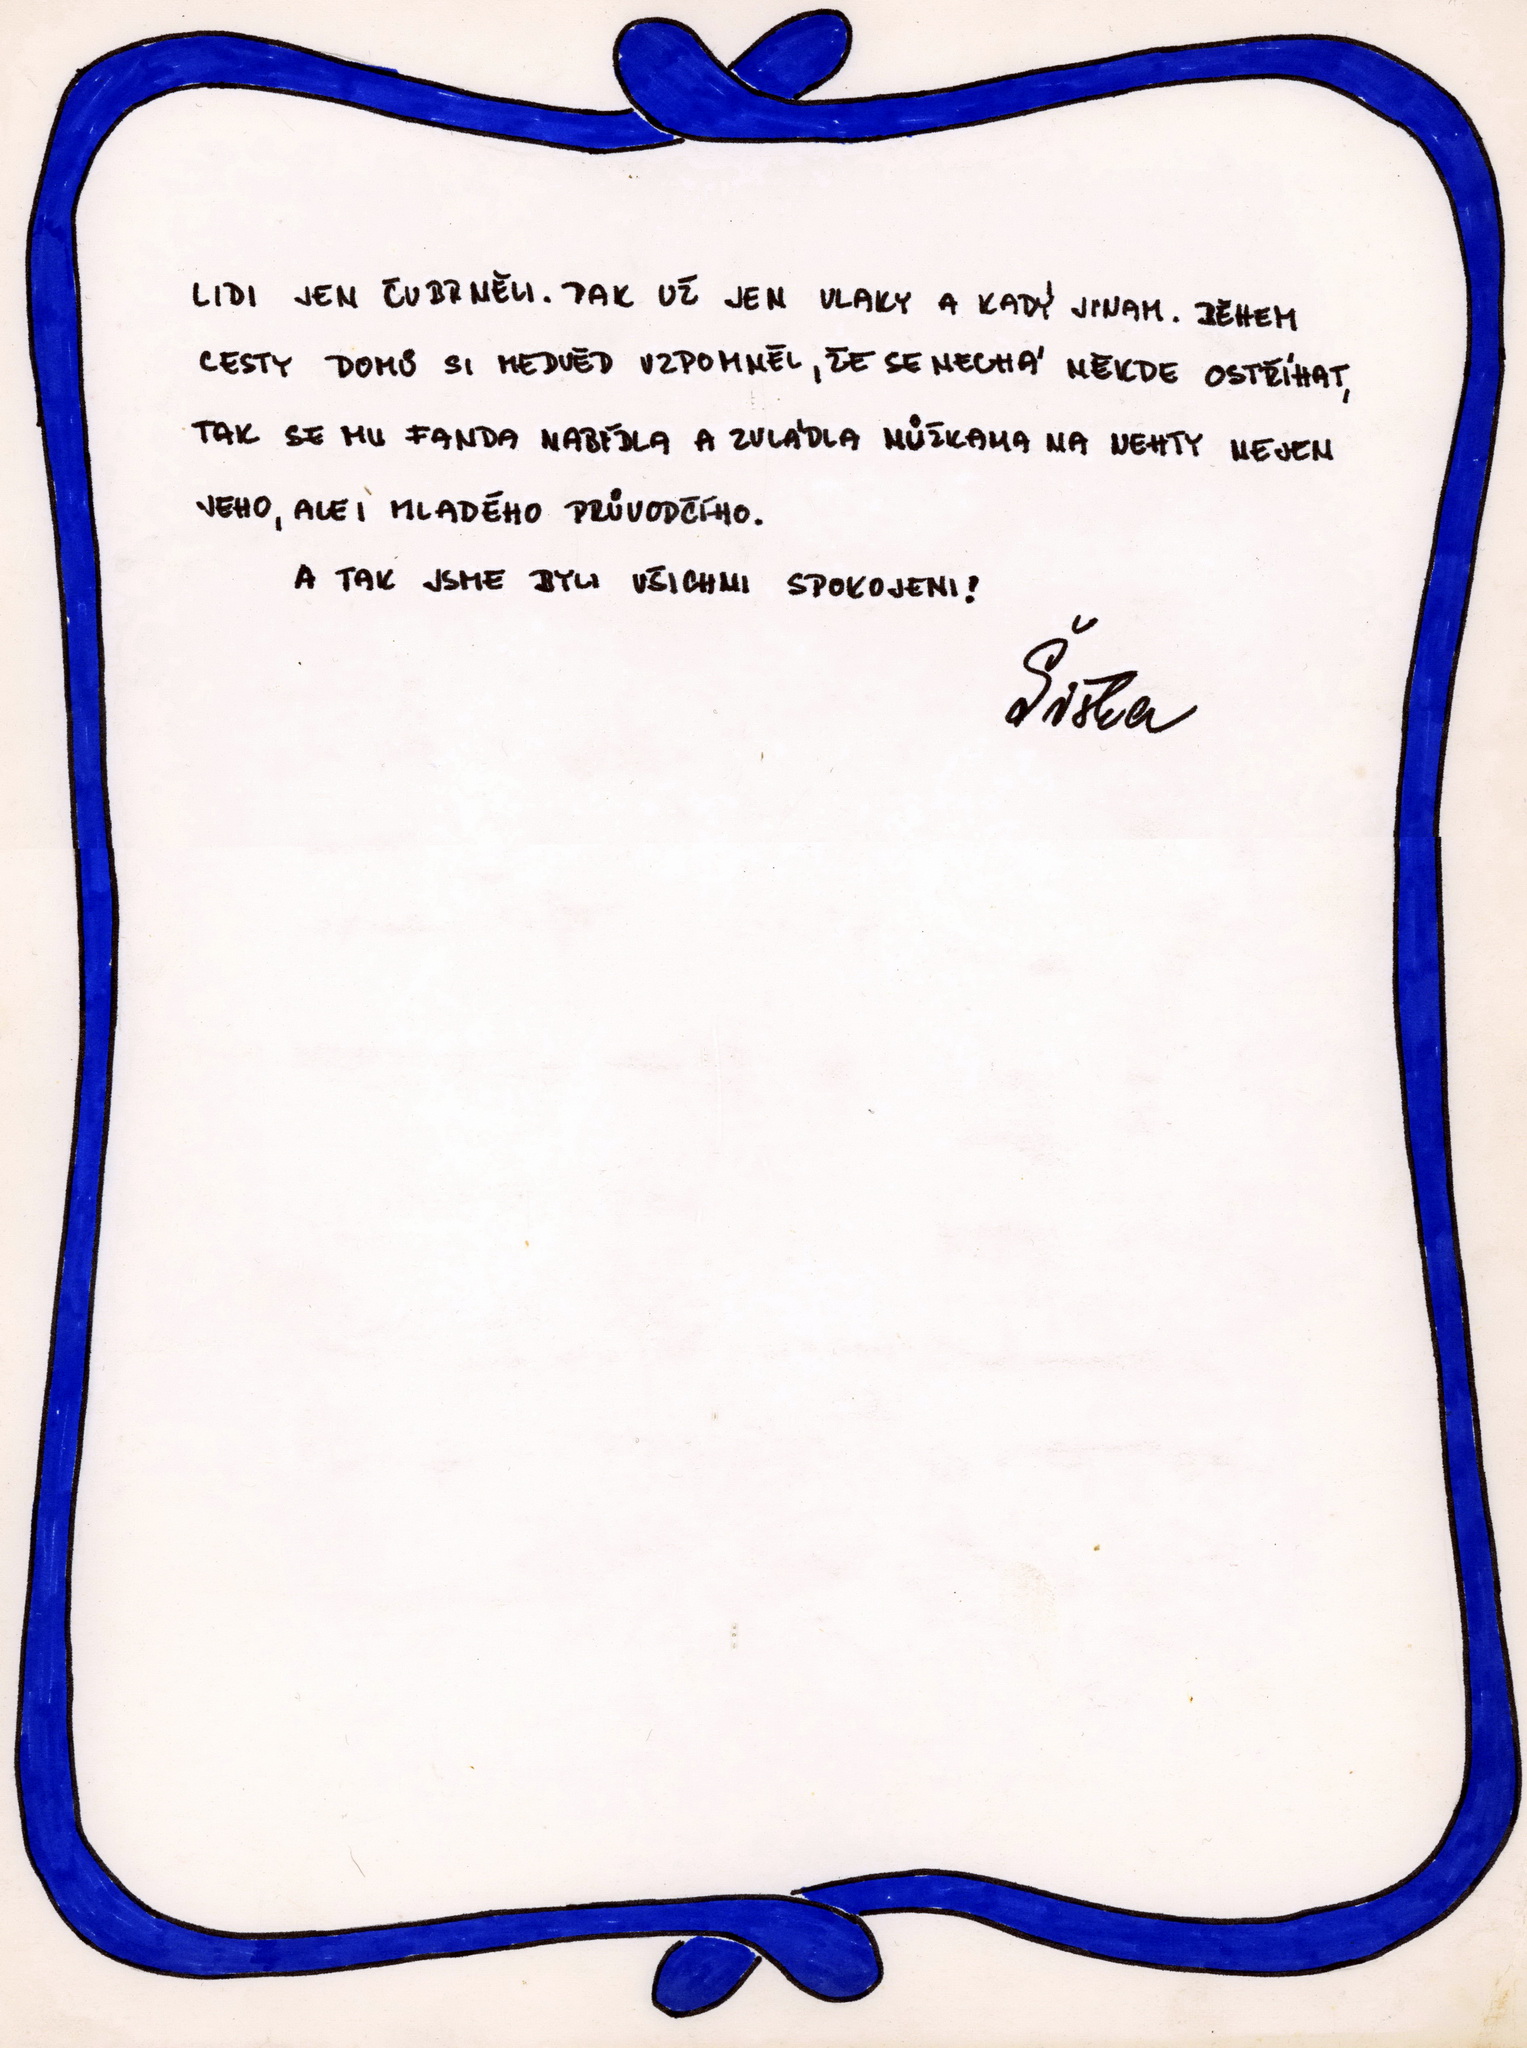 LIDI JEN ČUBRNĚLI. PAK UŽ JEN VLAKY A KADÝ JINAM. BĚHEM
CESTY DOMŮ SI MEDVĚD VZPOMNĚL, ŽE SE NECHÁ NĚKDE OSTŘÍHAT,
TAK SE MU FANDA NABÍDLA A ZVLÁDLA NŮŽKAMA NA NEHTY NEJEN
JEHO, ALE I MLADÉHO PRŮVODČÍHO.
A TAK JSME BYLI VŠICHNI SPOKOJENI!
Šiška